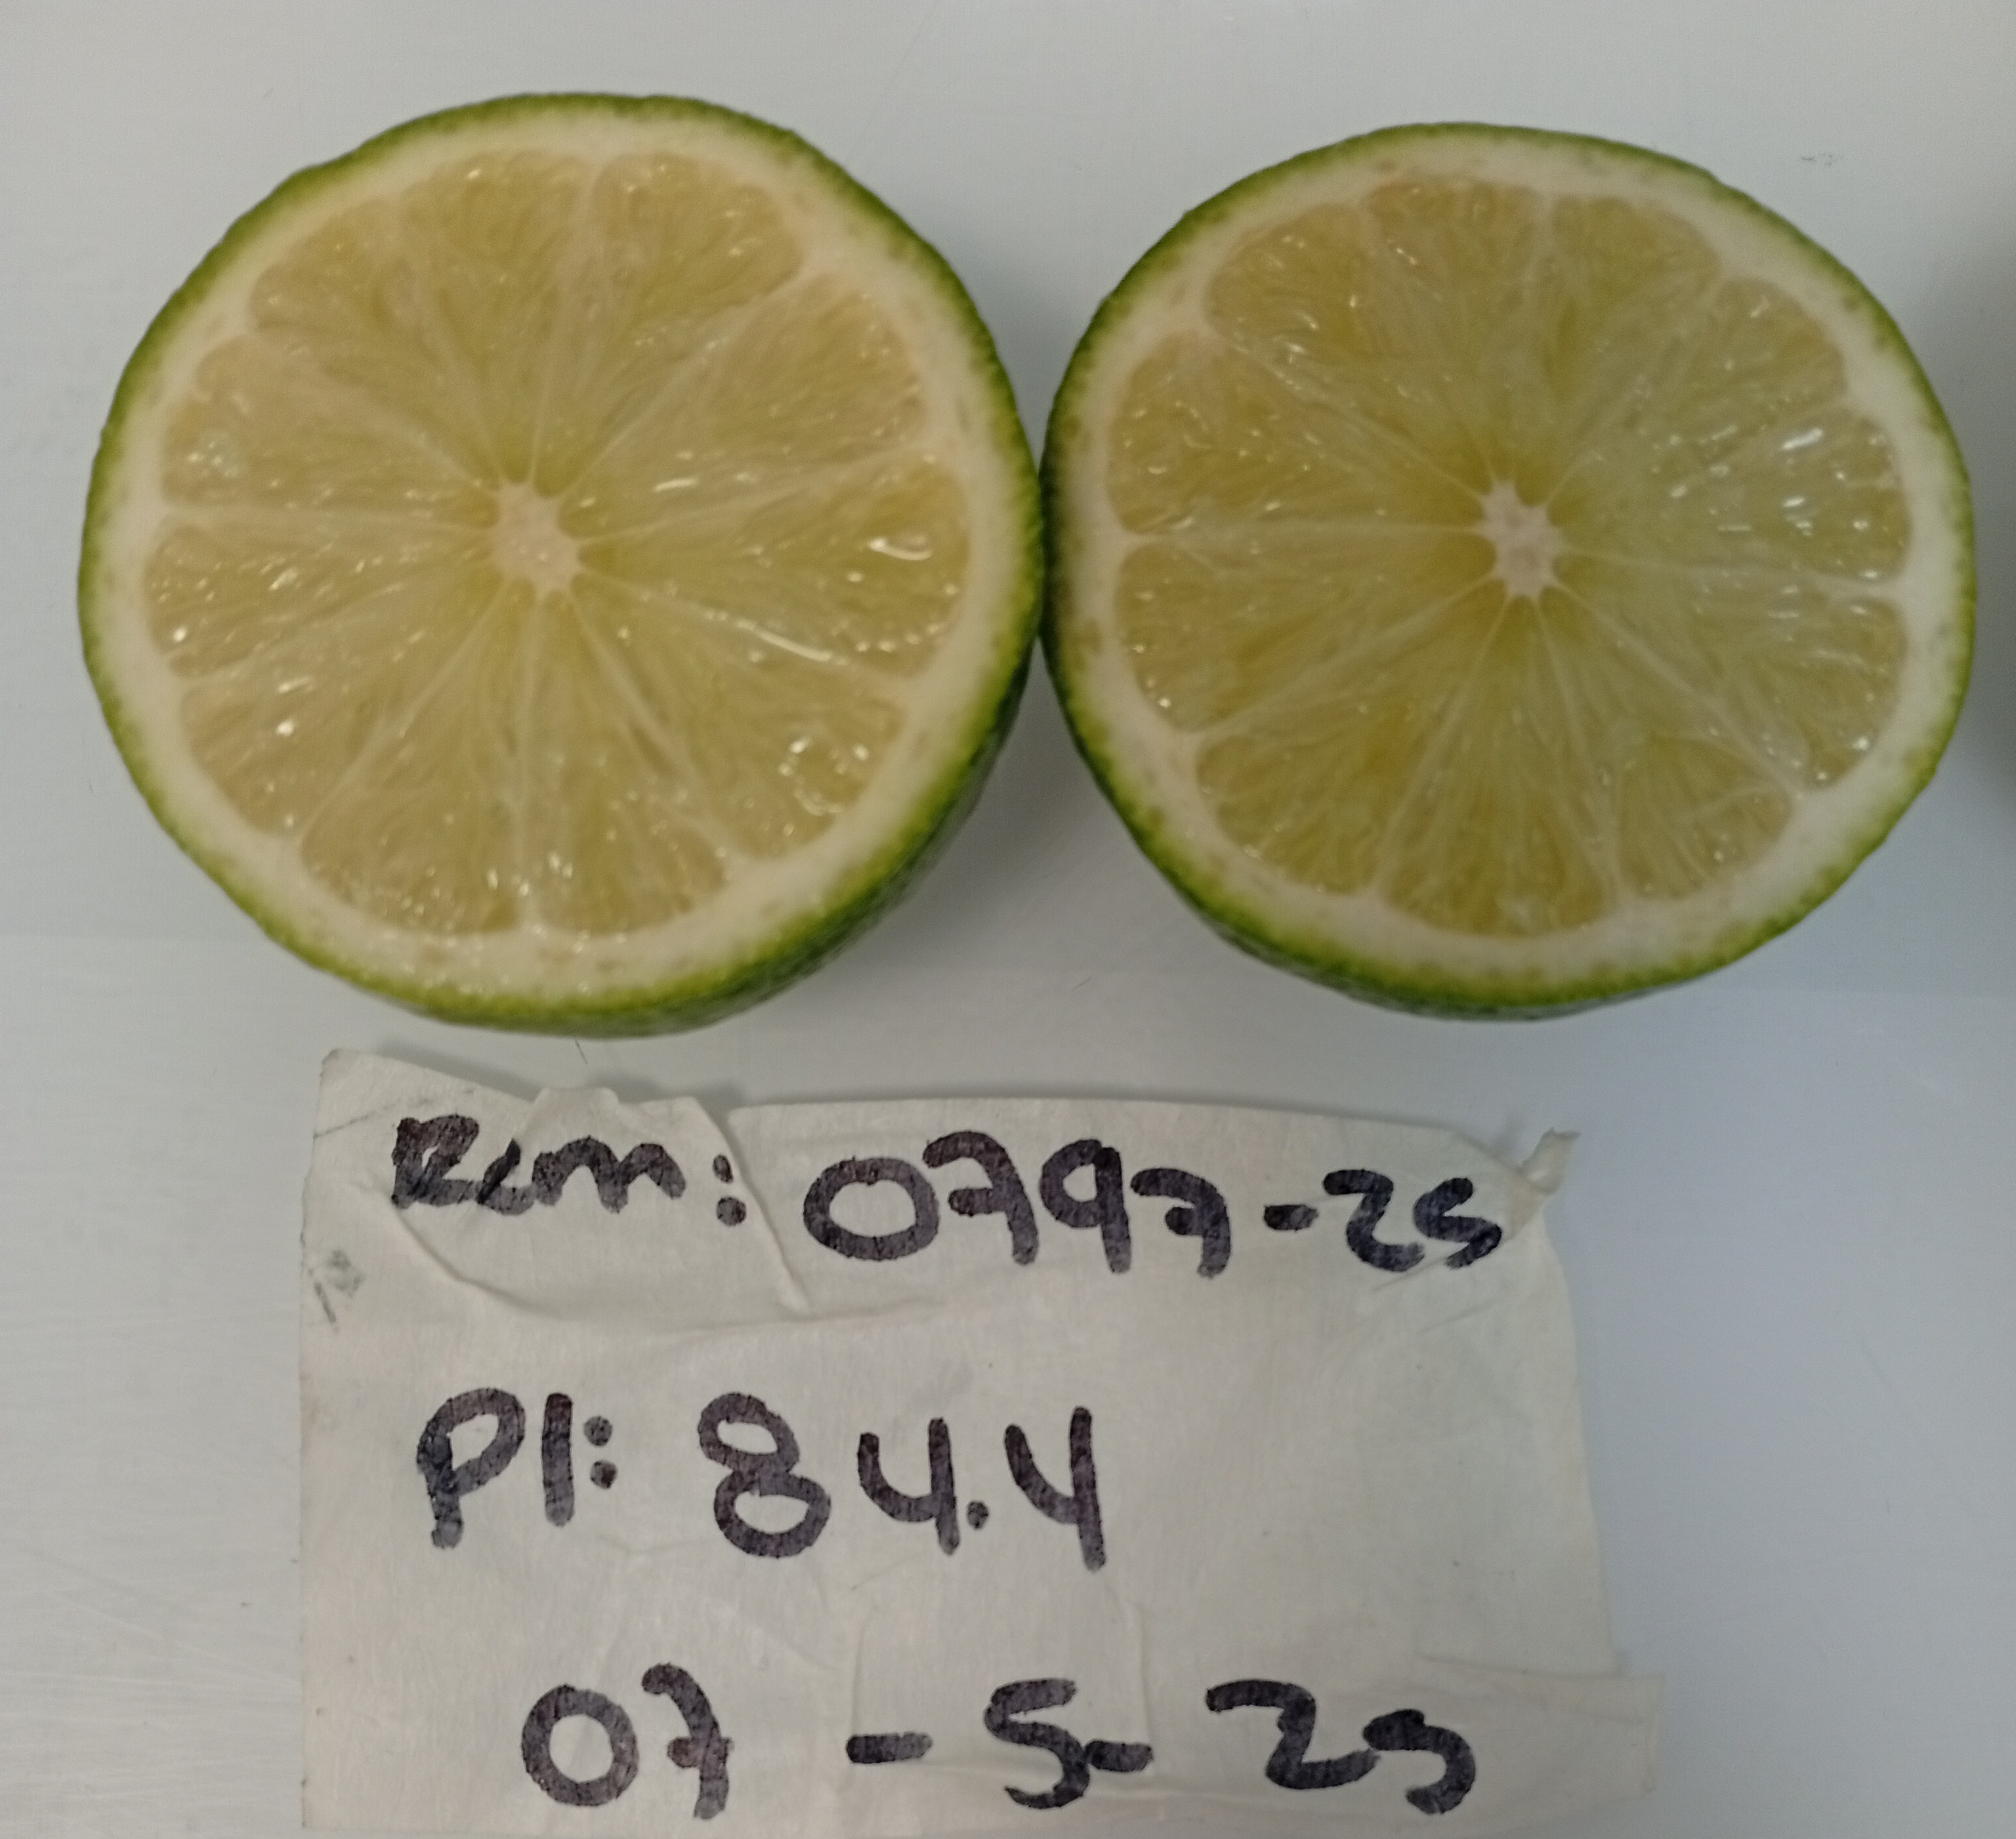 Rem: 0797-25
PI: 84.4
07-5-25